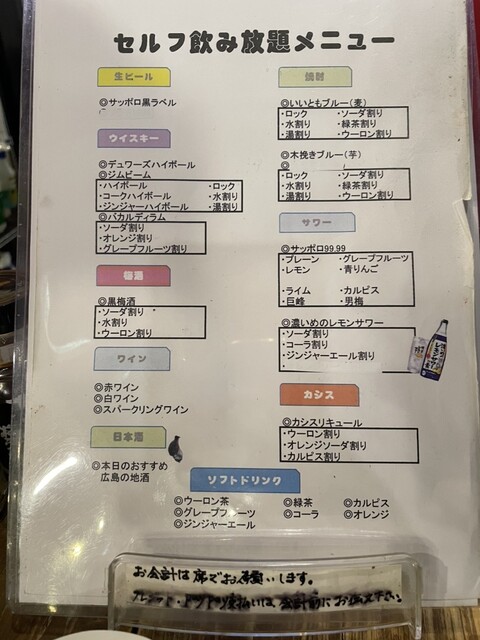 セルフ飲み放題メニュー
生ビール
◎サッポロ黒ラベル
ウイスキー
◎デュワーズハイボール
◎ジムビーム
・ハイボール ・ロック
・コークハイボール ・水割り
・ジンジャーハイボール ・湯割り
◎バカルディラム
・ソーダ割り
・オレンジ割り
・グレープフルーツ割り
梅酒
◎黒梅酒
・ソーダ割り
・水割り
・ウーロン割り
ワイン
◎赤ワイン
◎白ワイン
◎スパークリングワイン
日本酒
◎本日のおすすめ
広島の地酒
焼酎
◎いいともブルー(麦)
・ロック ・ソーダ割り
・水割り ・緑茶割り
・湯割り ・ウーロン割り
◎木挽きブルー(芋)
◎
・ロック ・ソーダ割り
・水割り ・緑茶割り
・湯割り ・ウーロン割り
サワー
◎サッポロ99.99
・プレーン ・グレープフルーツ
・レモン ・青りんご
・ライム ・カルピス
・巨峰 ・男梅
◎濃いめのレモンサワー
・ソーダ割り
・コーラ割り
・ジンジャーエール割り
・
カシス
◎カシスリキュール
・ウーロン割り
・オレンジソーダ割り
・カルピス割り
ソフトドリンク
◎ウーロン茶 ◎緑茶 ◎カルピス
◎グレープフルーツ ◎コーラ ◎オレンジ
◎ジンジャーエール
お会計は席でお願いします。
クレジット・ 払いは、会計前にお伝え下さい。